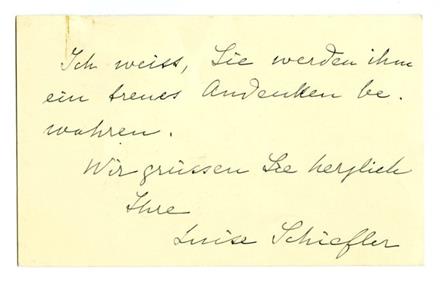 Ich weiss, Sie werden ihm
ein treues Andenken be-
wahren.
Wir grüssen Sie herzlich
Ihre
Luise Schiefler